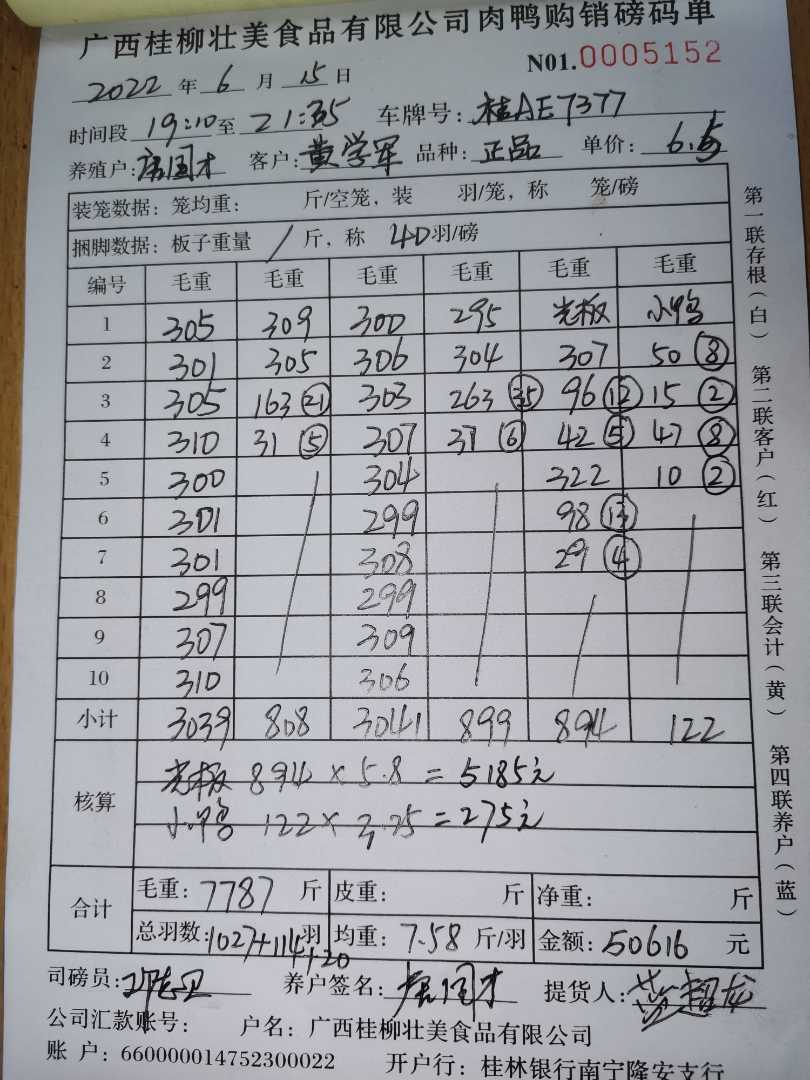 广西桂柳壮美食品有限公司肉鸭购销磅码单
N01.0005152
2022 年 6 月 15 日
时间段 19:10 至 21:35 车牌号: 桂AE7377
养殖户: 唐国才 客户: 黄学军 品种: 正品 单价: 6.5
装笼数据: 笼均重: 斤/空笼, 装 羽/笼, 称 笼/磅
捆脚数据: 板子重量 / 斤, 称 40 羽/磅
编号 毛重 毛重 毛重 毛重 毛重 毛重
1 305 309 300 295 光板 小鸭
2 301 305 306 304 307 50 ⑧
3 305 163 ㉑ 303 263 ㉟ 96 ⑫ 15 ②
4 310 31 ⑤ 307 37 ⑥ 42 ⑤ 47 ⑧
5 300 304 322 10 ②
6 301 299 98 ⑬
7 301 308 29 ④
8 299 299
9 307 309
10 310 306
小计 3039 808 3041 899 894 122
核算
光板 894 × 5.8 = 5185元
小鸭 122 × 2.25 = 275元
合计
毛重: 7787 斤 皮重: 斤 净重: 斤
总羽数: 1027+114+20 羽 均重: 7.58 斤/羽 金额: 50616 元
司磅员: 养户签名: 唐国才 提货人:
公司汇款账号: 户名: 广西桂柳壮美食品有限公司
账 户: 660000014752300022 开户行: 桂林银行南宁隆安支行
第一联存根(白)
第二联客户(红)
第三联会计(黄)
第四联养户(蓝)